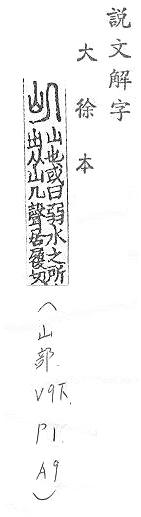 說文解字
大徐本
山也或曰弱水之所
出从山几聲居履切
（山部. V9下. P1. A9）